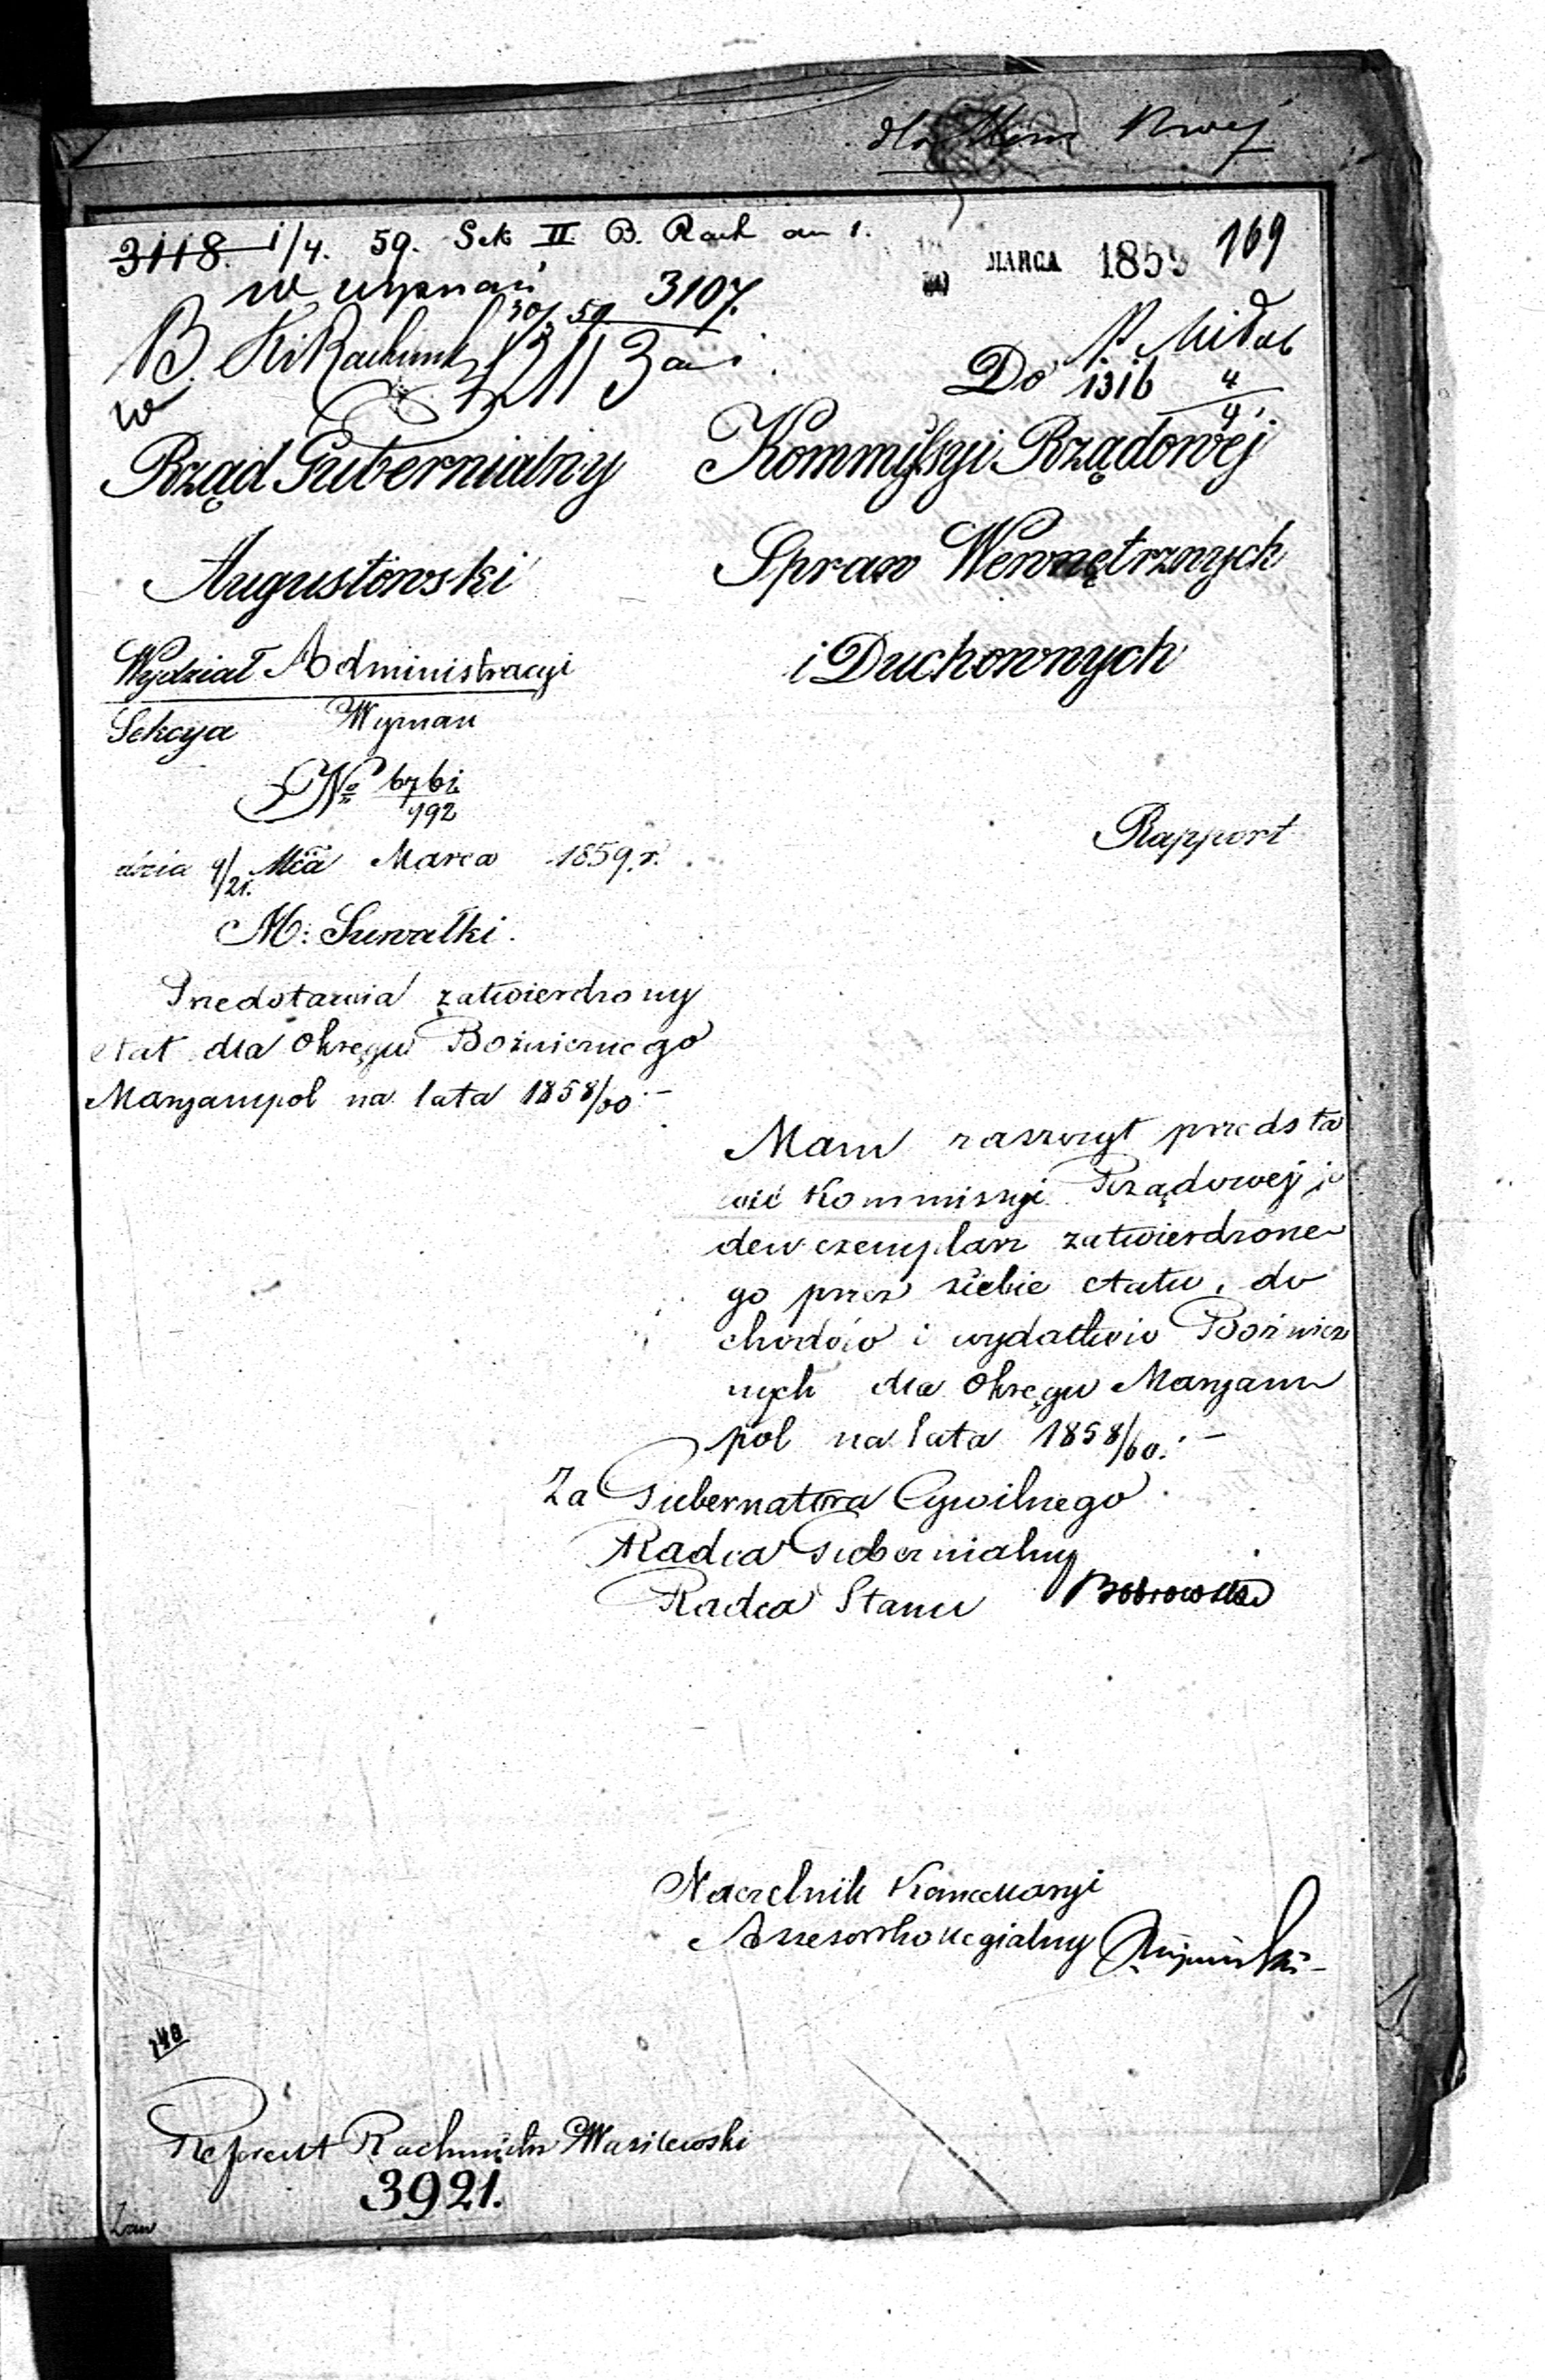 3118. 1/4. 59. Sek II B. Rach an 1.
MARCA 1859 169
w wyznań
30/3 59 3107.
B.
w
Do 1316 4/4.
Rząd Gubernialny
Augustowski
Wydział Administracyi
Sekcya Wyznań
No 6761/192
dnia 9/21. Mca Marca 1859 r.
M: Suwałki.
Przedstawia zatwierdzony
etat dla Okręgu Bożnicznego
Maryampol na lata 1858/60.–
Kommissyi Rządowéj
Spraw Wewnętrznych
i Duchownych
Rapport
Mam zaszczyt przedsta
wić Kommissyi Rządowej je
den exemplarz zatwierdzone
go przez siebie etatu, do
chodów i wydatków Bożnicz
nych dla Okręgu Maryam
pol na lata 1858/60.–
Za Gubernatora Cywilnego
Radca Gubernialny
Radca Stanu
Naczelnik Kancellaryi
Assesor Kollegialny
140
Referent Rachmistrz Wasilewski
3921.